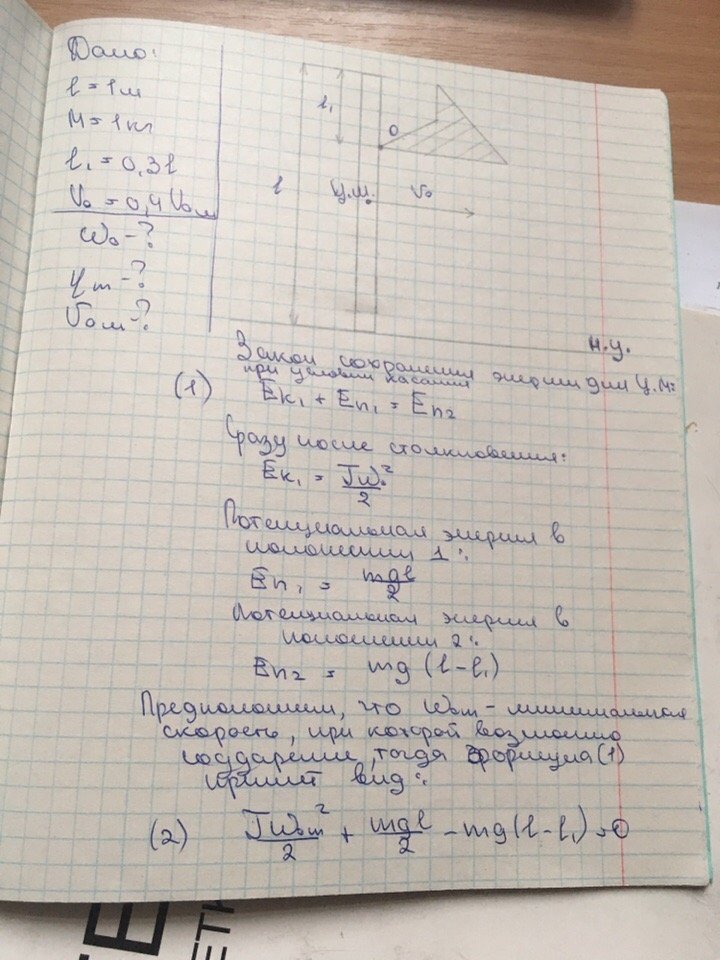 Дано:
l = 1 м
M = 1 кг
l₁ = 0,3 l
V₀ = 0,4 V₀м
ω₀ - ?
φm - ?
V₀м - ?
l₁
O
l
Ц.М.
V₀
Н.У.
Закон сохранения энергии для Ц.М:
при условии касания
(1) Eк₁ + Eп₁ = Eп₂
Сразу после столкновения:
Eк₁ = Jω₀²/2
Потенциальная энергия в
положении 1:
Eп₁ = mgl/2
Потенциальная энергия в
положении 2:
Eп₂ = mg (l - l₁)
Предположим, что ω₀m - минимальная
скорость, при которой возможно
соударение, тогда формула (1)
примет вид:
(2) Jω₀m²/2 + mgl/2 - mg(l - l₁) = 0
ЕТК